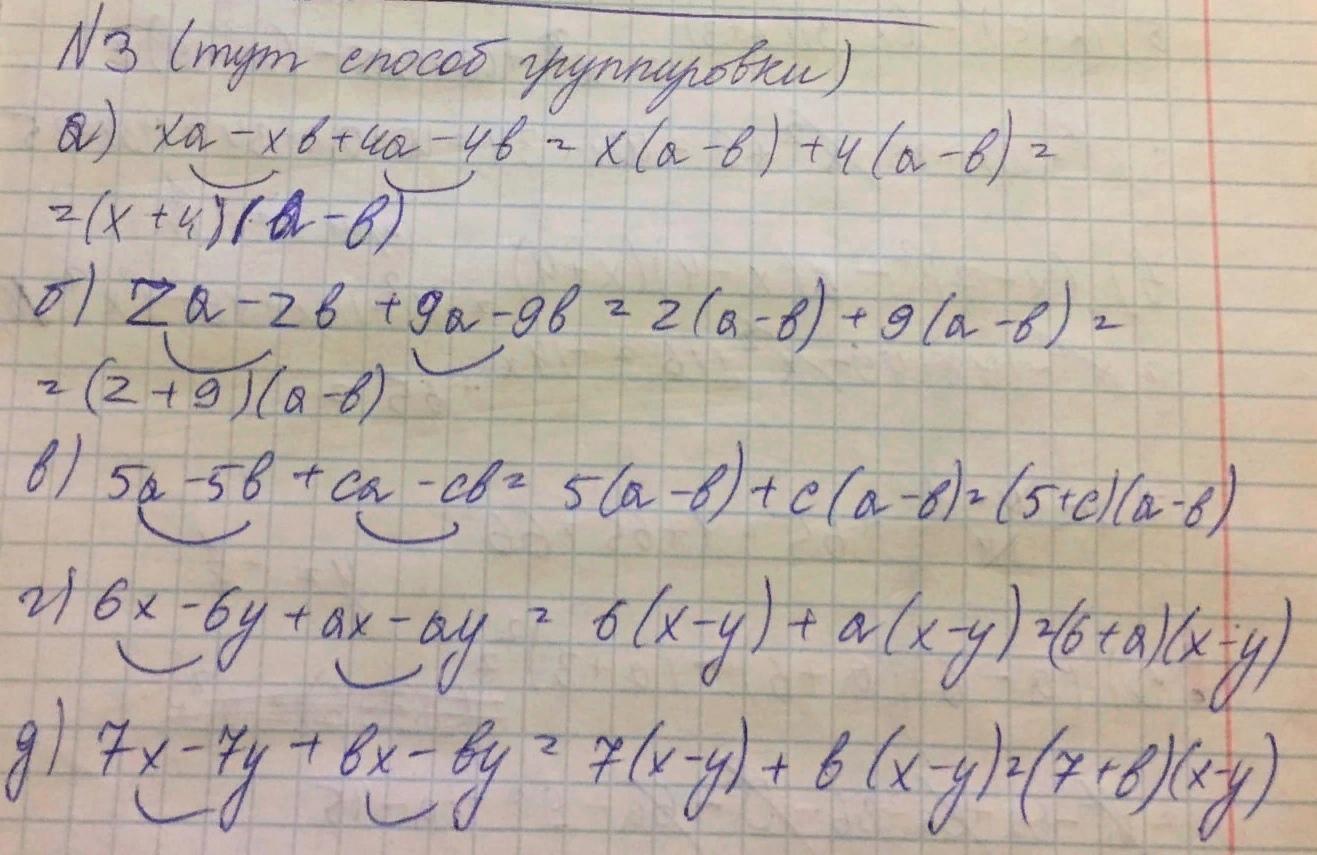 N3 (тут способ группировки)
а) xa - xв + 4a - 4в = x(a - в) + 4(a - в) =
= (x + 4)(a - в)
б) 2a - 2в + 9a - 9в = 2(a - в) + 9(a - в) =
= (2 + 9)(a - в)
в) 5a - 5в + ca - cв = 5(a - в) + c(a - в) = (5 + c)(a - в)
г) 6x - 6y + ax - ay = 6(x - y) + a(x - y) = (6 + a)(x - y)
д) 7x - 7y + вx - вy = 7(x - y) + в(x - y) = (7 + в)(x - y)